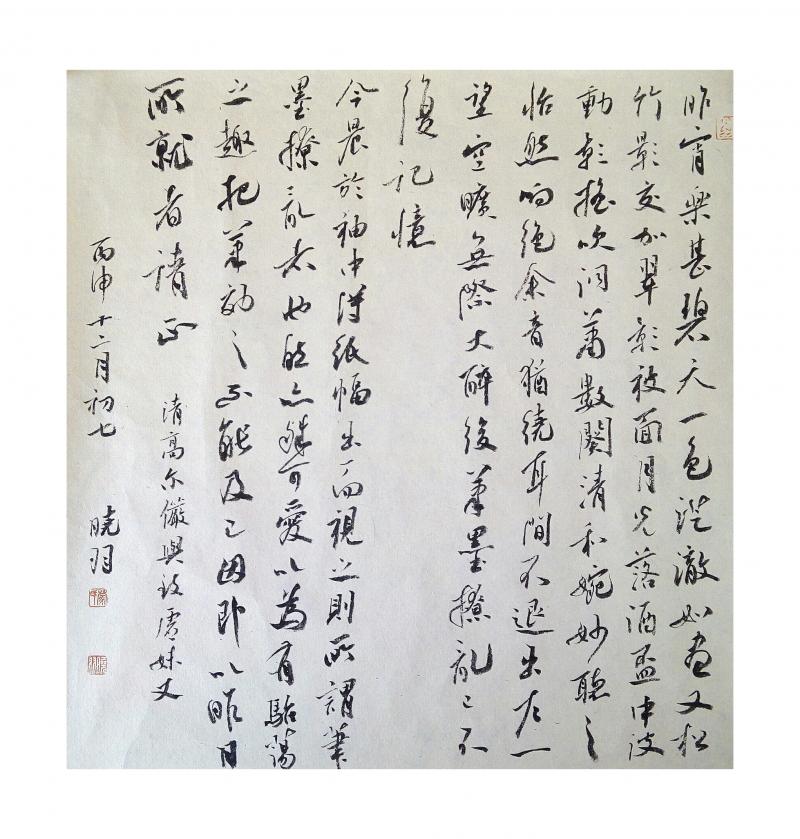 昨宵樂甚碧天一色澄澈如畫又松
竹影交加翠影被面月光落酒盃中波
動影搖吹洞簫數闋清和婉妙聽之
怡然响絕余音猶繞耳間不退出戶一
望空曠無際大醉後筆墨撩亂之不
復記憶
今晨於袖中得紙幅出而視之則所謂筆
墨撩亂者也然亦殊可愛以為有駘蕩
之趣把筆効之不能及已因即以昨日
所就者請正
清高尔儼與故虞妹丈
丙申十二月初七
曉羽